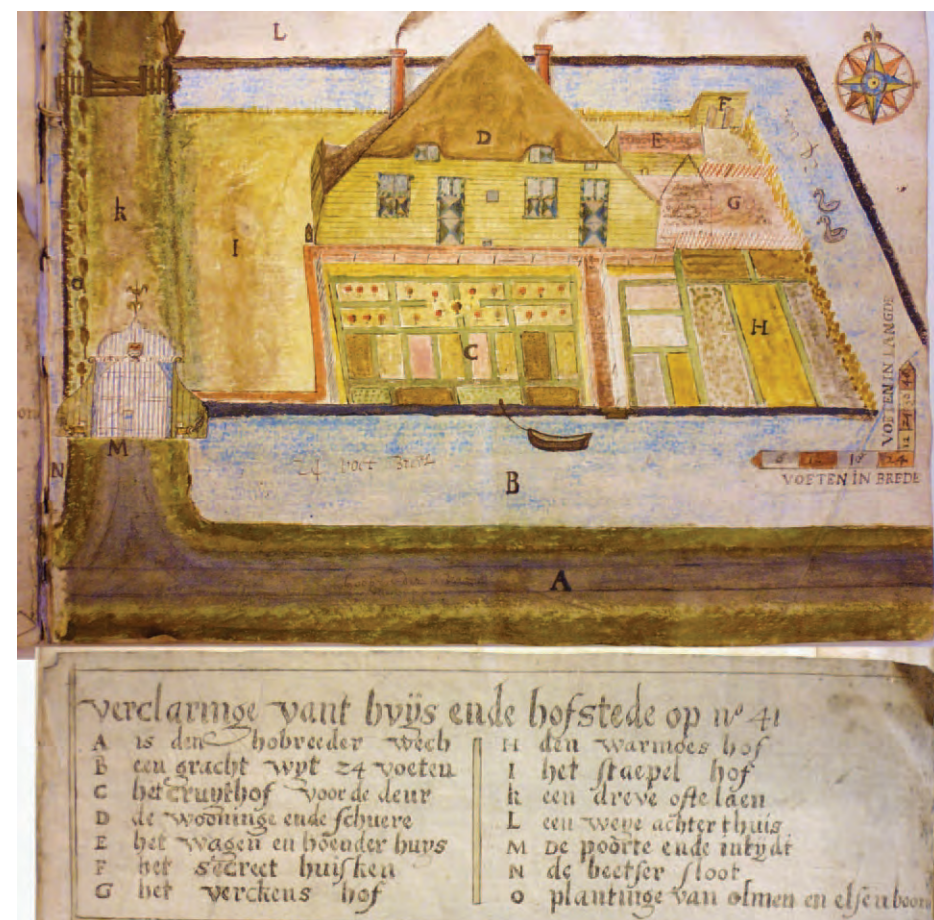 L
F
D
E
k
G
I
o
H
C
VOETEN IN LANGDE
12 24
M
24 voet
N
B
6 12 18 24
VOETEN IN BREDE
A
verclaringe vant huijs ende hofstede op no 41
A is den hobreeder wech
B een gracht wyt 24 voeten
C het cruythof voor de deur
D de wooninge ende schuere
E het wagen en hoender huys
F het secreet huisken
G het verckens hof
H den warmoes hof
I het staepel hof
k een dreve ofte laen
L een weye achter thuis
M De poorte ende intydt
N de beetser sloot
O plantinge van olmen en elsen boom